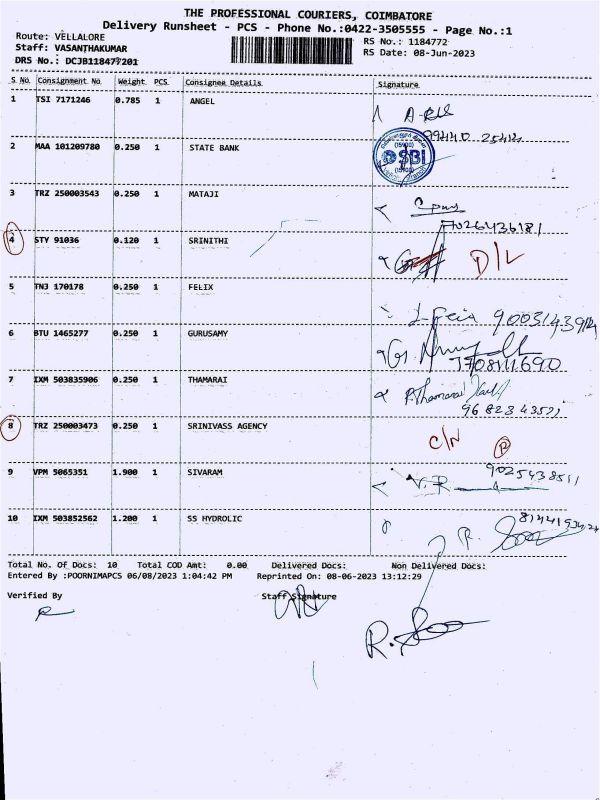 THE PROFESSIONAL COURIERS, COIMBATORE
Delivery Runsheet - PCS - Phone No.:0422-3505555 - Page No.:1
Route: VELLALORE
RS No.: 1184772
Staff: VASANTHAKUMAR
RS Date: 08-Jun-2023
DRS No.: DCJB118477201
S No. Consignment No. Weight PCS Consignee Details Signature
1 TSI 7171246 0.785 1 ANGEL
2 MAA 101209780 0.250 1 STATE BANK
SBI
3 TRZ 250003543 0.250 1 MATAJI
7026436181
4 STY 91036 0.120 1 SRINITHI D/L
5 TNJ 170178 0.250 1 FELIX
6 BTU 1465277 0.250 1 GURUSAMY
7708111690
7 IXM 503835906 0.250 1 THAMARAI P.Thamarai
8 TRZ 250003473 0.250 1 SRINIVASS AGENCY
C/N R
9 VPM 5065351 1.900 1 SIVARAM
10 IXM 503852562 1.200 1 SS HYDROLIC
Total No. Of Docs: 10 Total COD Amt: 0.00 Delivered Docs: Non Delivered Docs:
Entered By :POORNIMAPCS 06/08/2023 1:04:42 PM Reprinted On: 08-06-2023 13:12:29
Verified By Staff Signature